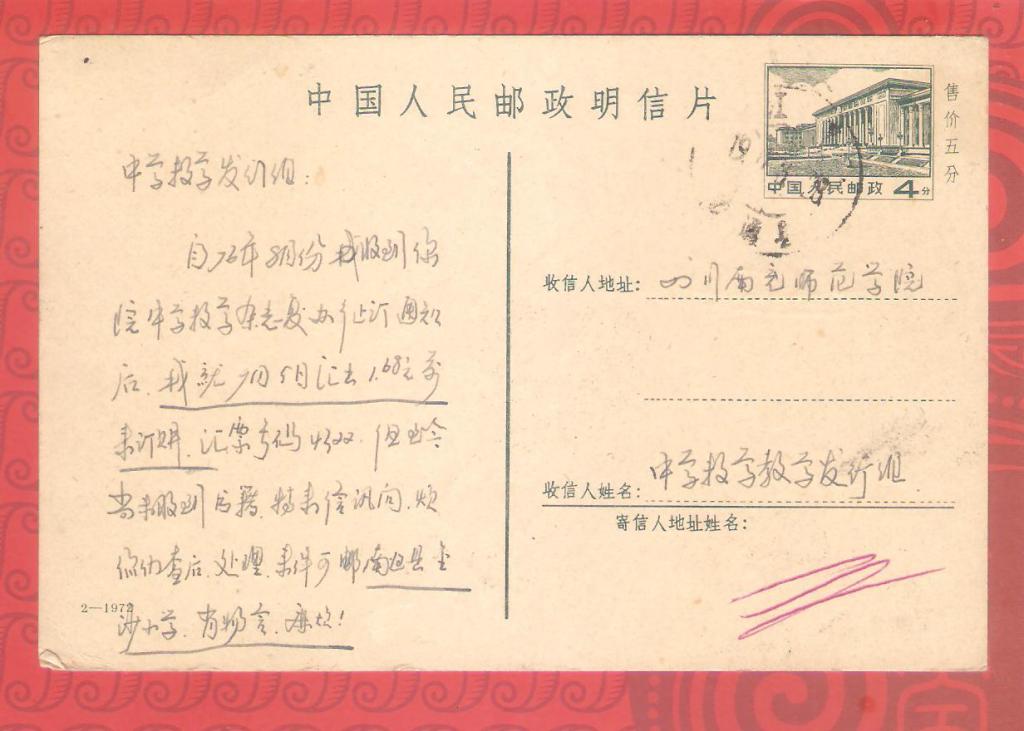 中国人民邮政明信片
售价五分
中国人民邮政 4分
中学教学发行组：
自 年 月份我收到你
院中学教学杂志复办征订通知
后，我就 月 日汇去1.68元前
来订购，汇票号码 但至今
尚未收到书籍，特来信讯问，烦
你们查后，处理，来件可邮南 县金
沙小学， 麻烦！
2—1972
收信人地址：四川南充师范学院
收信人姓名：中学教学 发行组
寄信人地址姓名：